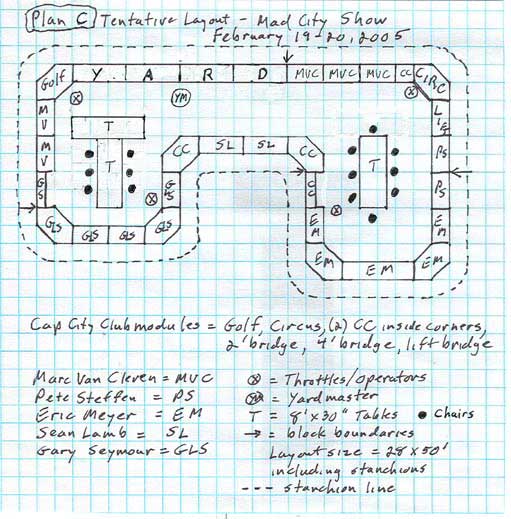 Plan C Tentative Layout - Mad City Show
February 19-20, 2005
Golf Y A R D MVC MVC MVC CC CIRC
YM
MV
MV
GLS
T
T
GLS
GLS GLS GLS
GLS
CC SL SL CC
CC
T
PS
PS
EM
EM
EM EM EM
Cap City Club modules = Golf, Circus, (2) CC inside corners,
2' bridge, 4' bridge, lift bridge
Marc Van Cleven = MVC
Pete Steffen = PS
Eric Meyer = EM
Sean Lamb = SL
Gary Seymour = GLS
ⓧ = Throttles/operators
YM = Yardmaster
T = 8'x30" Tables ● Chairs
→ = block boundaries
Layout size = 28'x50'
including stanchions
--- stanchion line